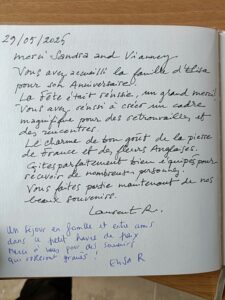 29/05/2025
merci Sandra and Vianney
Vous avez accueilli la famille d'Elisa
pour son Anniversaire.
La Fête était réussie, un grand merci
Vous avez réussi à créer un cadre
magnifique pour des retrouvailles et
des rencontres.
Le charme de bon goût de la pierre
de France et des fleurs Anglaises.
Gîtes parfaitement bien équipés pour
recevoir de nombreuses personnes.
Vous faites partie maintenant de nos
beaux souvenirs.
Laurent R.
Un séjour en famille et entre amis
dans ce petit havre de paix
Merci à vous pour des souvenirs
qui resteront gravés !
Elisa R